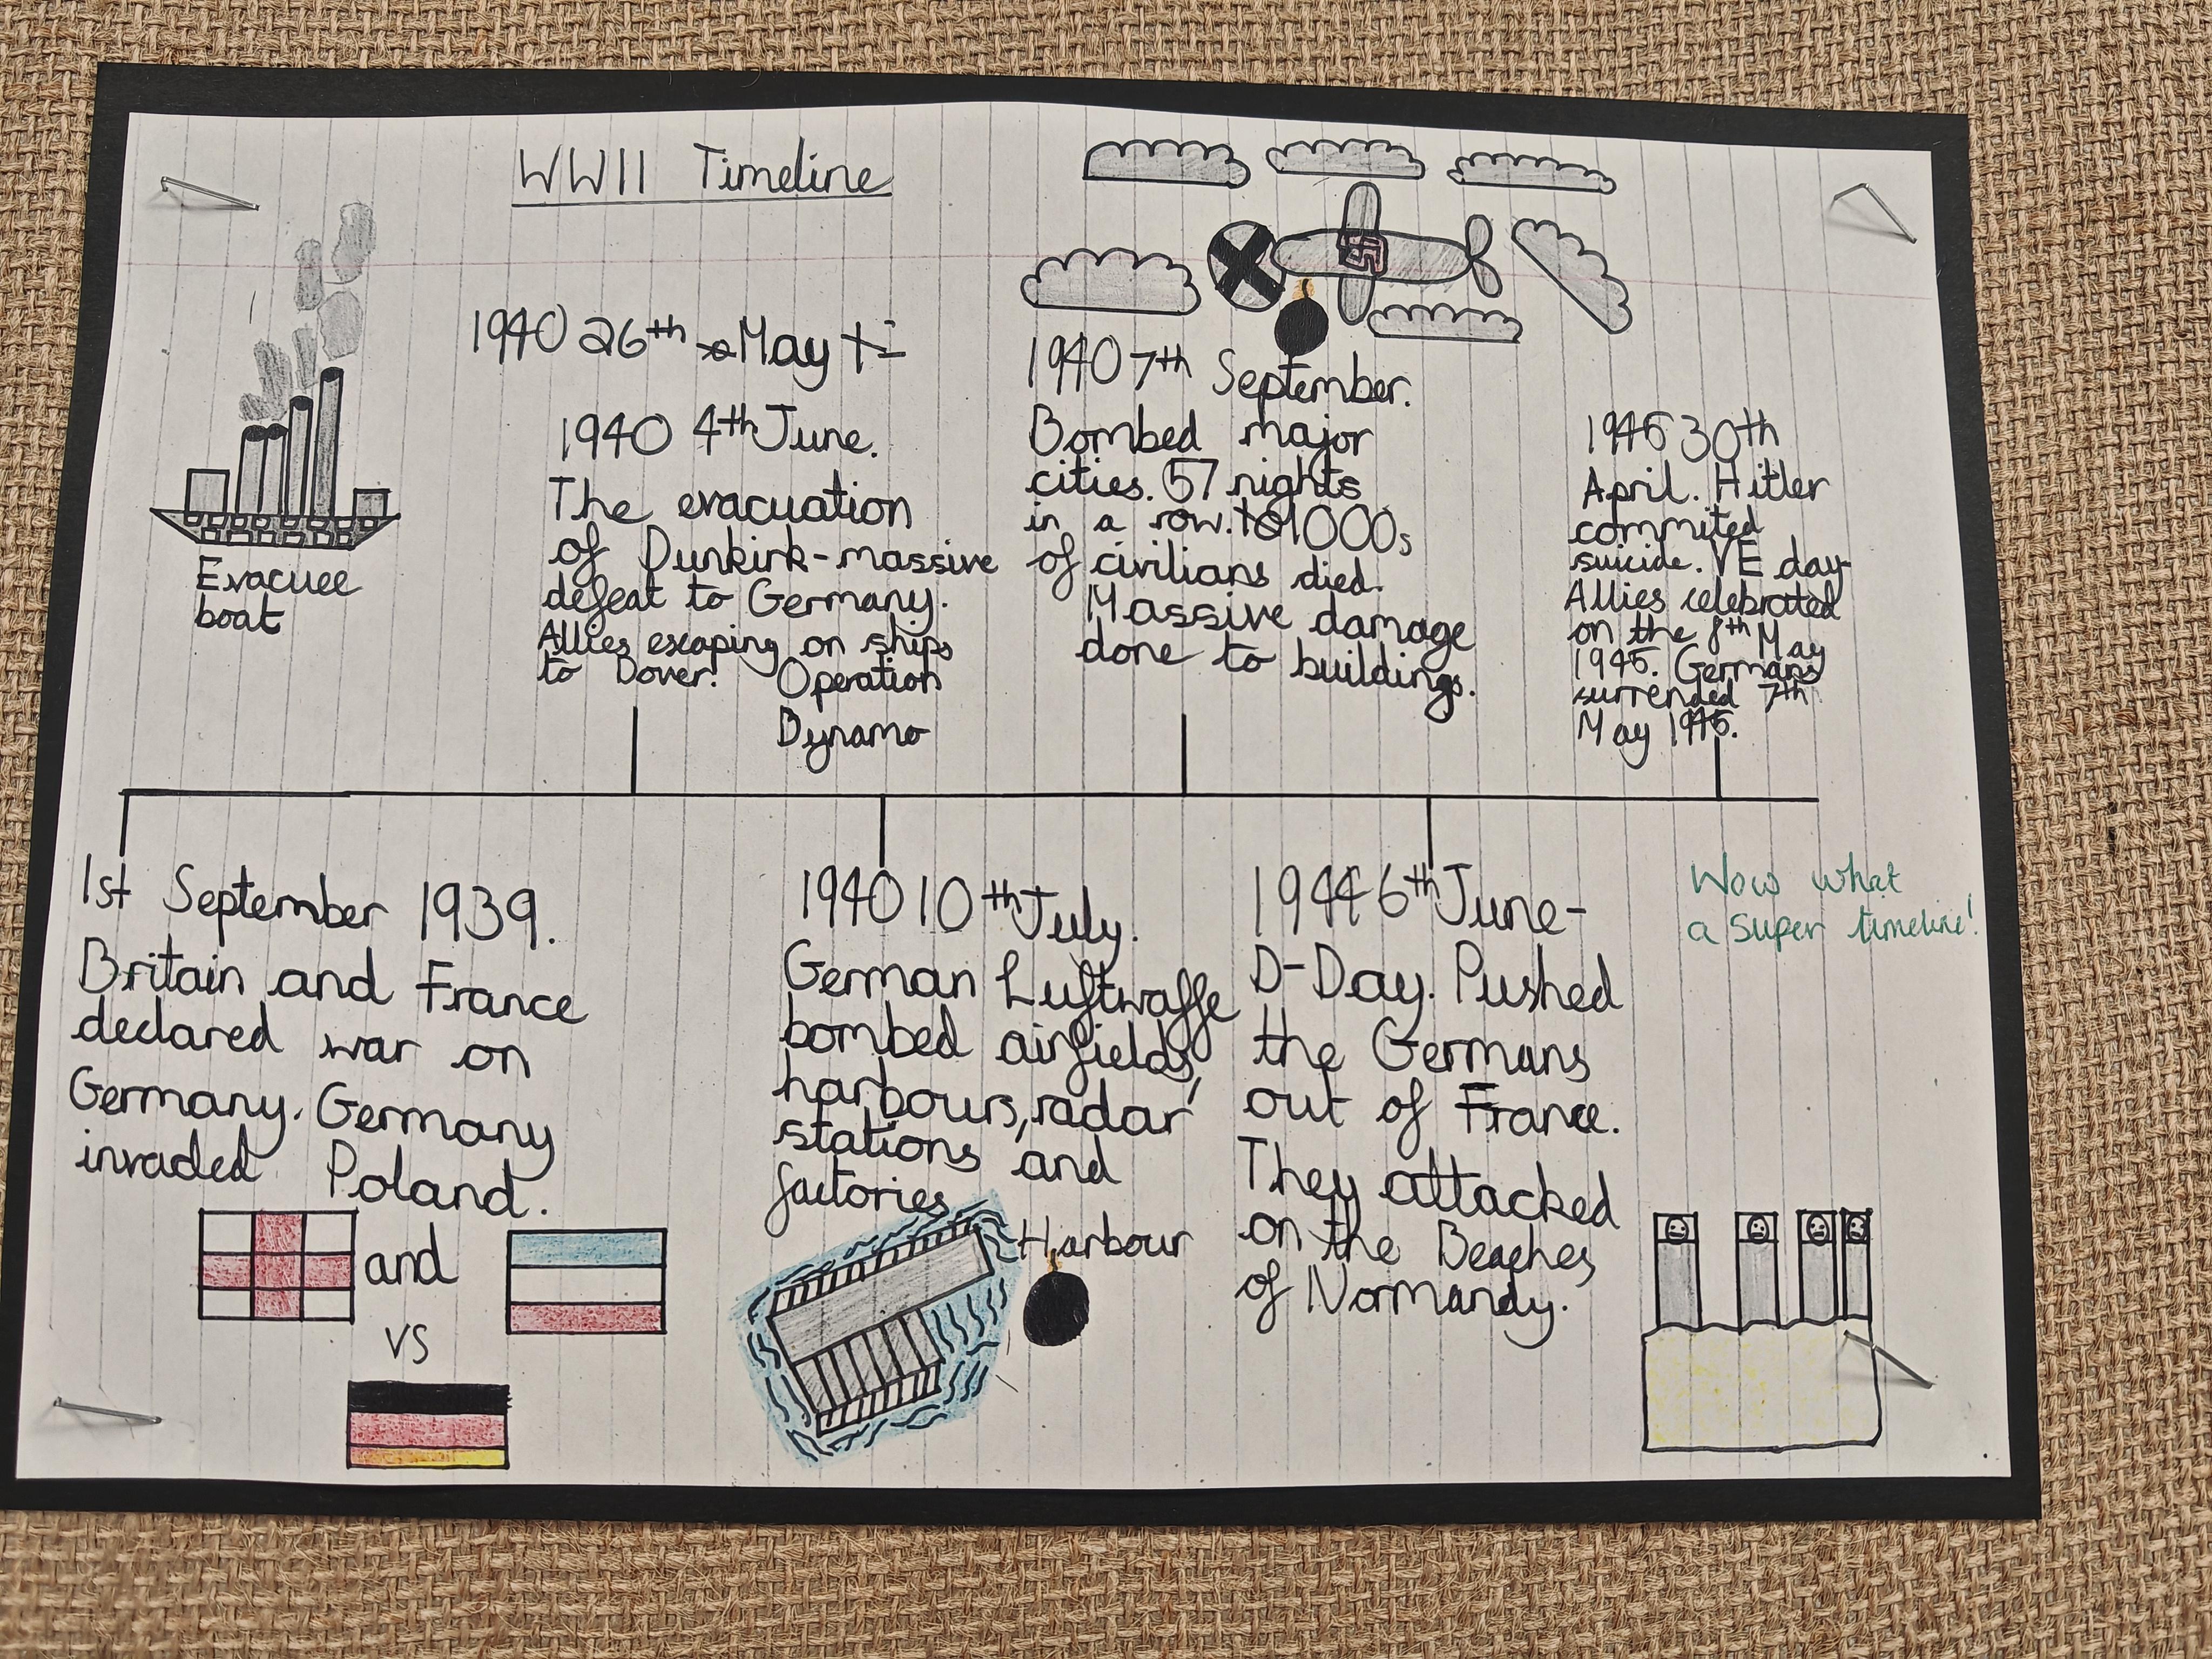 WWII Timeline
Evacuee
boat
1940 26th May
1940 4th June.
The evacuation
of Dunkirk-massive
defeat to Germany.
Allies escaping on ships
to Dover. Operation
Dynamo
1940 7th September.
Bombed major
cities. 57 nights
in a row. 1000s
of civilians died.
Massive damage
done to buildings.
1945 30th
April. Hitler
commited
suicide. VE day-
Allies celebrated
on the 8th May
1945. Germans
surrended 7th
May 1945.
1st September 1939.
Britain and France
declared war on
Germany. Germany
invaded Poland.
and
VS
1940 10th July.
German Luftwaffe
bombed airfields,
harbours, radar
stations and
factories
Harbour
1944 6th June-
D-Day. Pushed
the Germans
out of France.
They attacked
on the Beaches
of Normandy.
Wow what
a super timeline!